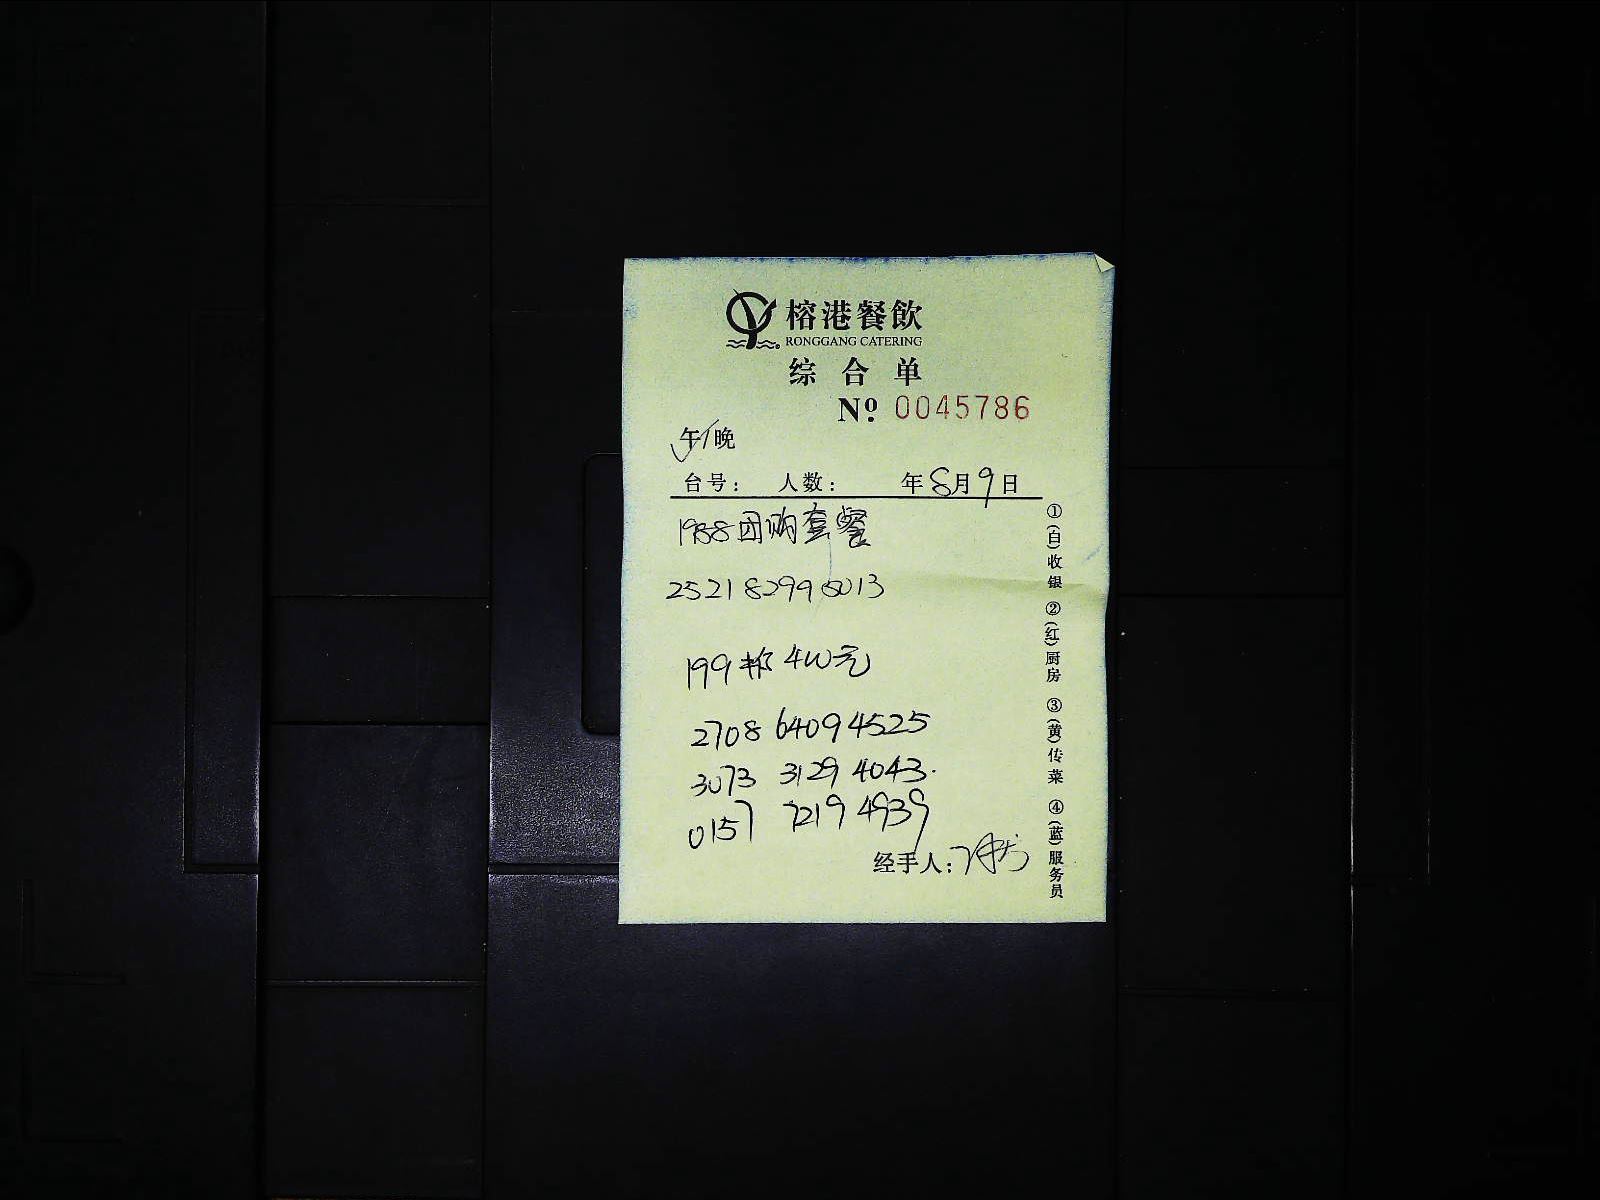 榕港餐飲
RONGGANG CATERING
综合单
Nº 0045786
午/晚
台号: 人数: 年8月9日
1988团购套餐
252182996013
199抵400元
2708 6409 4525
3073 3129 4043.
0157 7219 4939
经手人:
①(白)收银 ②(红)厨房 ③(黄)传菜 ④(蓝)服务员